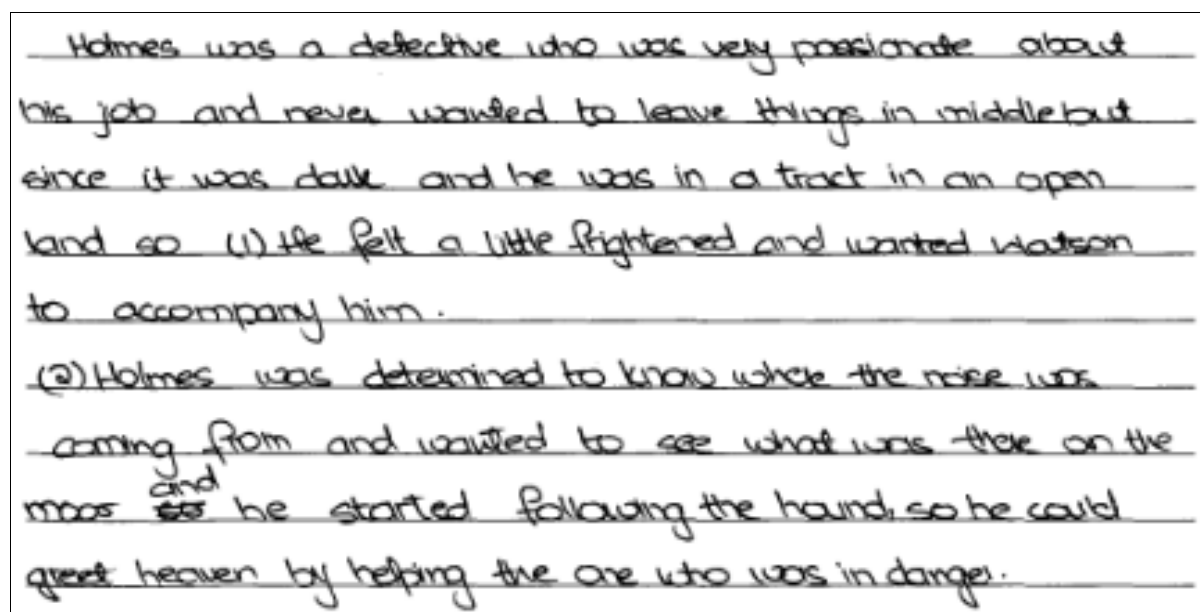 Holmes was a detective who was very passionate about
his job and never wanted to leave things in middle but
since it was dark and he was in a tract in an open
land so (1) He felt a little frightened and wanted Watson
to accompany him.
(2) Holmes was determined to know where the noise was
coming from and wanted to see what was there on the
moor and he started following the hound, so he could
greet heaven by helping the one who was in danger.